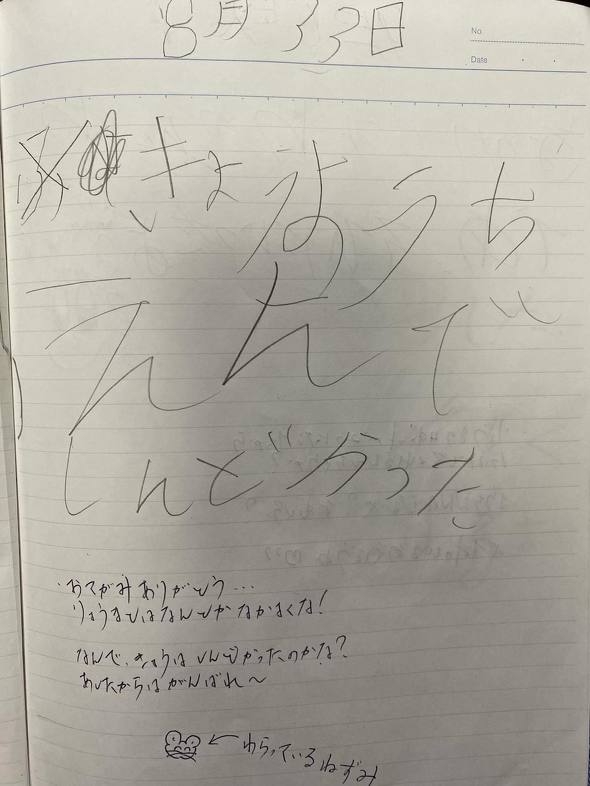 No.
8月33日
Date
きょようち
えんで
しんどかった
おてがみありがとう…
りょうまとはなんとかなかよくな!
なんで、きょうはしんどかったのかな?
あしたからはがんばれ〜
←わらっているねずみ